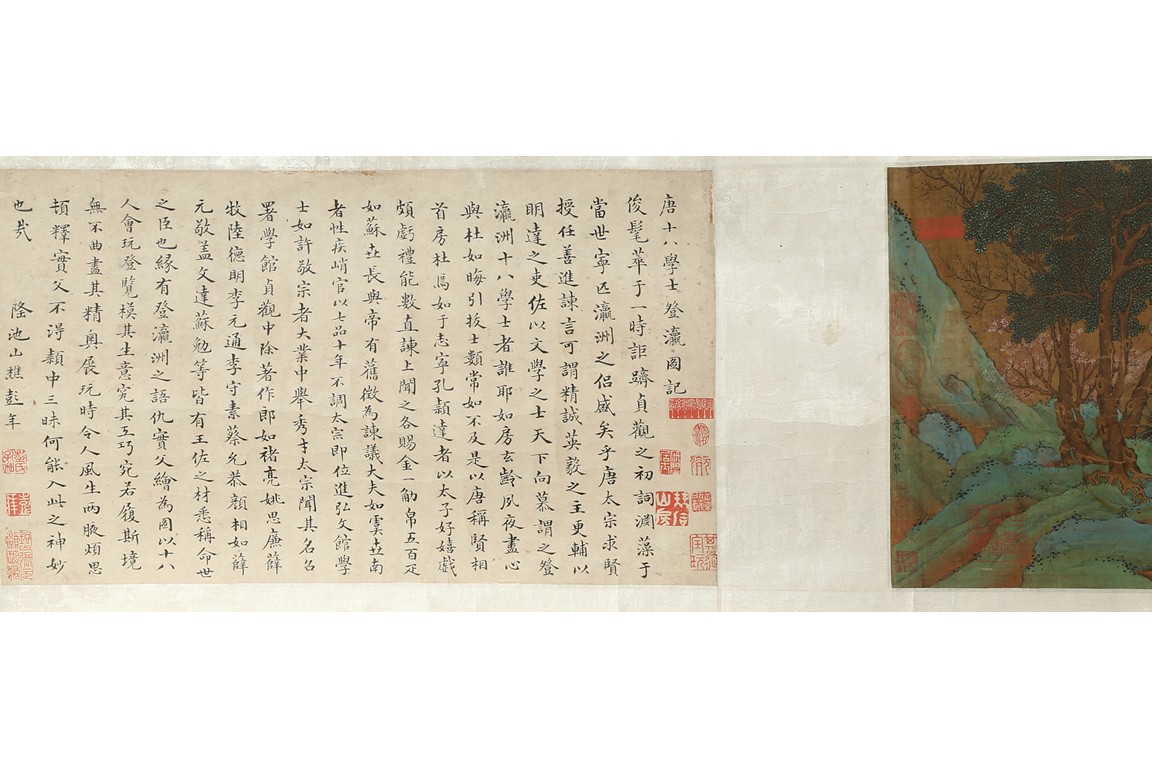 唐十八學士登瀛圖記
俊髦萃于一時詎躋貞觀之初詞涸藻于
當世寧匹瀛洲之侶盛矣乎唐太宗求賢
授任善進諫言可謂精誠英毅之主更輔以
明達之吏佐以文學之士天下向慕謂之登
瀛洲十八學士者誰耶如房玄齡夙夜盡心
與杜如晦引拔士類常如不及是以唐稱賢相
首房杜焉如于志寧孔穎達者以太子好嬉戲
頗虧禮能數直諫上聞之各賜金一觔帛五百疋
如蘇世長與帝有舊徵為諫議大夫如虞世南
者性疾峭官以七品十年不調太宗即位進弘文館學
士如許敬宗者大業中舉秀才太宗聞其名召
署學館貞觀中除著作郎如褚亮姚思廉薛
牧陸德明李元通李守素蔡允恭顏相如薛
元敬蓋文達蘇勉等皆有王佐之材悉稱命世
之臣也緣有登瀛洲之語仇實父繪為圖以十八
人會玩登覽模其生意究其工巧宛若履斯境
無不曲盡其精奧展玩時令人風生兩腋煩思
頓釋實父不淂類中三昧何能入此之神妙
也哉 隆池山樵彭年